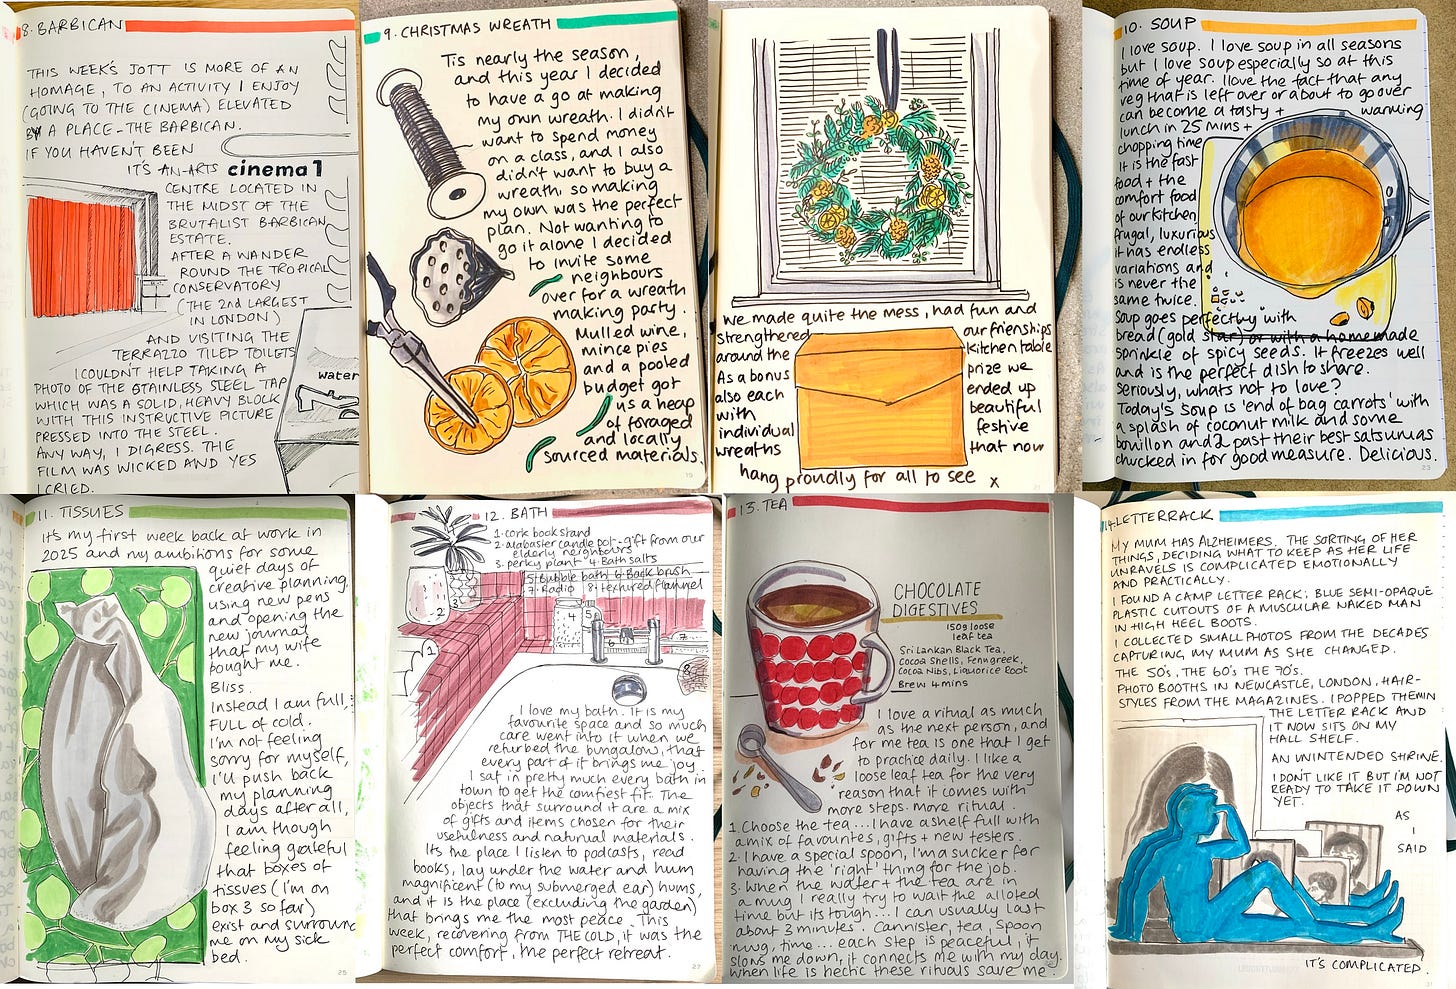 8. BARBICAN
THIS WEEK'S JOTT IS MORE OF AN
HOMAGE, TO AN ACTIVITY I ENJOY
(GOING TO THE CINEMA) ELEVATED
BY A PLACE - THE BARBICAN.
IF YOU HAVEN'T BEEN
IT'S AN ARTS
cinema 1
CENTRE LOCATED IN
THE MIDST OF THE
BRUTALIST BARBICAN
ESTATE.
AFTER A WANDER
ROUND THE TROPICAL
CONSERVATORY
(THE 2nd LARGEST
IN LONDON)
AND VISITING THE
TERRAZZO TILED TOILETS
I COULDN'T HELP TAKING A
PHOTO OF THE STAINLESS STEEL TAP
WHICH WAS A SOLID, HEAVY BLOCK
WITH THIS INSTRUCTIVE PICTURE
PRESSED INTO THE STEEL.
ANY WAY, I DIGRESS. THE
FILM WAS WICKED AND YES
I CRIED.
water
9. CHRISTMAS WREATH
Tis nearly the season,
and this year I decided
to have a go at making
my own wreath. I didn't
want to spend money
on a class, and I also
didn't want to buy a
wreath so making
my own was the perfect
plan. Not wanting to
go it alone I decided
to invite some
neighbours
over for a wreath
making party.
Mulled wine,
mince pies
and a pooled
budget got
us a heap
of foraged
and locally
sourced materials.
19
We made quite the mess, had fun and
strengthened our frienships
around the kitchen table
As a bonus prize we
also each ended up
with beautiful
individual festive
wreaths that now
hang proudly for all to see x
21
10. SOUP
I love soup. I love soup in all seasons
but I love soup especially so at this
time of year. I love the fact that any
veg that is left over or about to go over
can become a tasty + warming
lunch in 25 mins +
chopping time
It is the fast
food + the
comfort food
of our kitchen
frugal, luxurious
it has endless
variations and
is never the
same twice.
Soup goes perfectly with
bread (gold star) or with a homemade
sprinkle of spicy seeds. It freezes well
and is the perfect dish to share.
Seriously, whats not to love?
Today's soup is 'end of bag carrots' with
a splash of coconut milk and some
bouillon and 2 past their best satsumas
chucked in for good measure. Delicious.
23
11. TISSUES
It's my first week back at work in
2025 and my ambitions for some
quiet days of
creative planning,
using new pens
and opening the
new journal
that my wife
bought me.
Bliss.
Instead I am full,
FULL of cold.
I'm not feeling
sorry for myself,
i'll push back
my planning
days after all,
I am though
feeling grateful
that boxes of
tissues (I'm on
box 3 so far)
exist and surround
me on my sick
bed.
25
12. BATH
1. Cork book stand
2. alabaster candle pot - gift from our
elderly neighbours
3. perky plant 4. Bath salts
5. Bubble bath 6. Back brush
7. Radio 8. textured flannel
I love my bath. It is my
favourite space and so much
care went into it when we
refurbed the bungalow, that
every part of it brings me joy.
I sat in pretty much every bath in
town to get the comfiest fit. The
objects that surround it are a mix
of gifts and items chosen for their
usefulness and natural materials.
Its the place I listen to podcasts, read
books, lay under the water and hum
magnificent (to my submerged ear) hums,
and it is the place (excluding the garden)
that brings me the most peace. This
week, recovering from THE COLD, it was the
perfect comfort, the perfect retreat.
27
13. TEA
CHOCOLATE
DIGESTIVES
150g loose
leaf tea
Sri Lankan Black Tea,
Cocoa Shells, Fenugreek,
Cocoa Nibs, Liquorice Root
Brew 4 mins
I love a ritual as much
as the next person, and
for me tea is one that I get
to practice daily. I like a
loose leaf tea for the very
reason that it comes with
more steps. more ritual.
1. Choose the tea... I have a shelf full with
a mix of favourites, gifts + new testers.
2. I have a special spoon, I'm a sucker for
having the 'right' thing for the job.
3. When the water + the tea are in
a mug I really try to wait the alloted
time but its tough... I can usually last
about 3 minutes. Cannister, tea, spoon
mug, time... each step is peaceful, it
slows me down, it connects me with my day.
When life is hectic these rituals save me.
14. LETTER RACK
MY MUM HAS ALZHEIMERS. THE SORTING OF HER
THINGS, DECIDING WHAT TO KEEP AS HER LIFE
UNRAVELS IS COMPLICATED EMOTIONALLY
AND PRACTICALLY.
I FOUND A CAMP LETTER RACK; BLUE SEMI-OPAQUE
PLASTIC CUTOUTS OF A MUSCULAR NAKED MAN
IN HIGH HEEL BOOTS.
I COLLECTED SMALL PHOTOS FROM THE DECADES
CAPTURING MY MUM AS SHE CHANGED.
THE 50's. THE 60's THE 70's.
PHOTO BOOTHS IN NEWCASTLE, LONDON. HAIR-
STYLES FROM THE MAGAZINES. I POPPED THEM IN
THE LETTER RACK AND
IT NOW SITS ON MY
HALL SHELF.
AN UNINTENDED SHRINE.
I DON'T LIKE IT BUT I'M NOT
READY TO TAKE IT DOWN
YET.
AS
I
SAID
IT'S COMPLICATED.
31